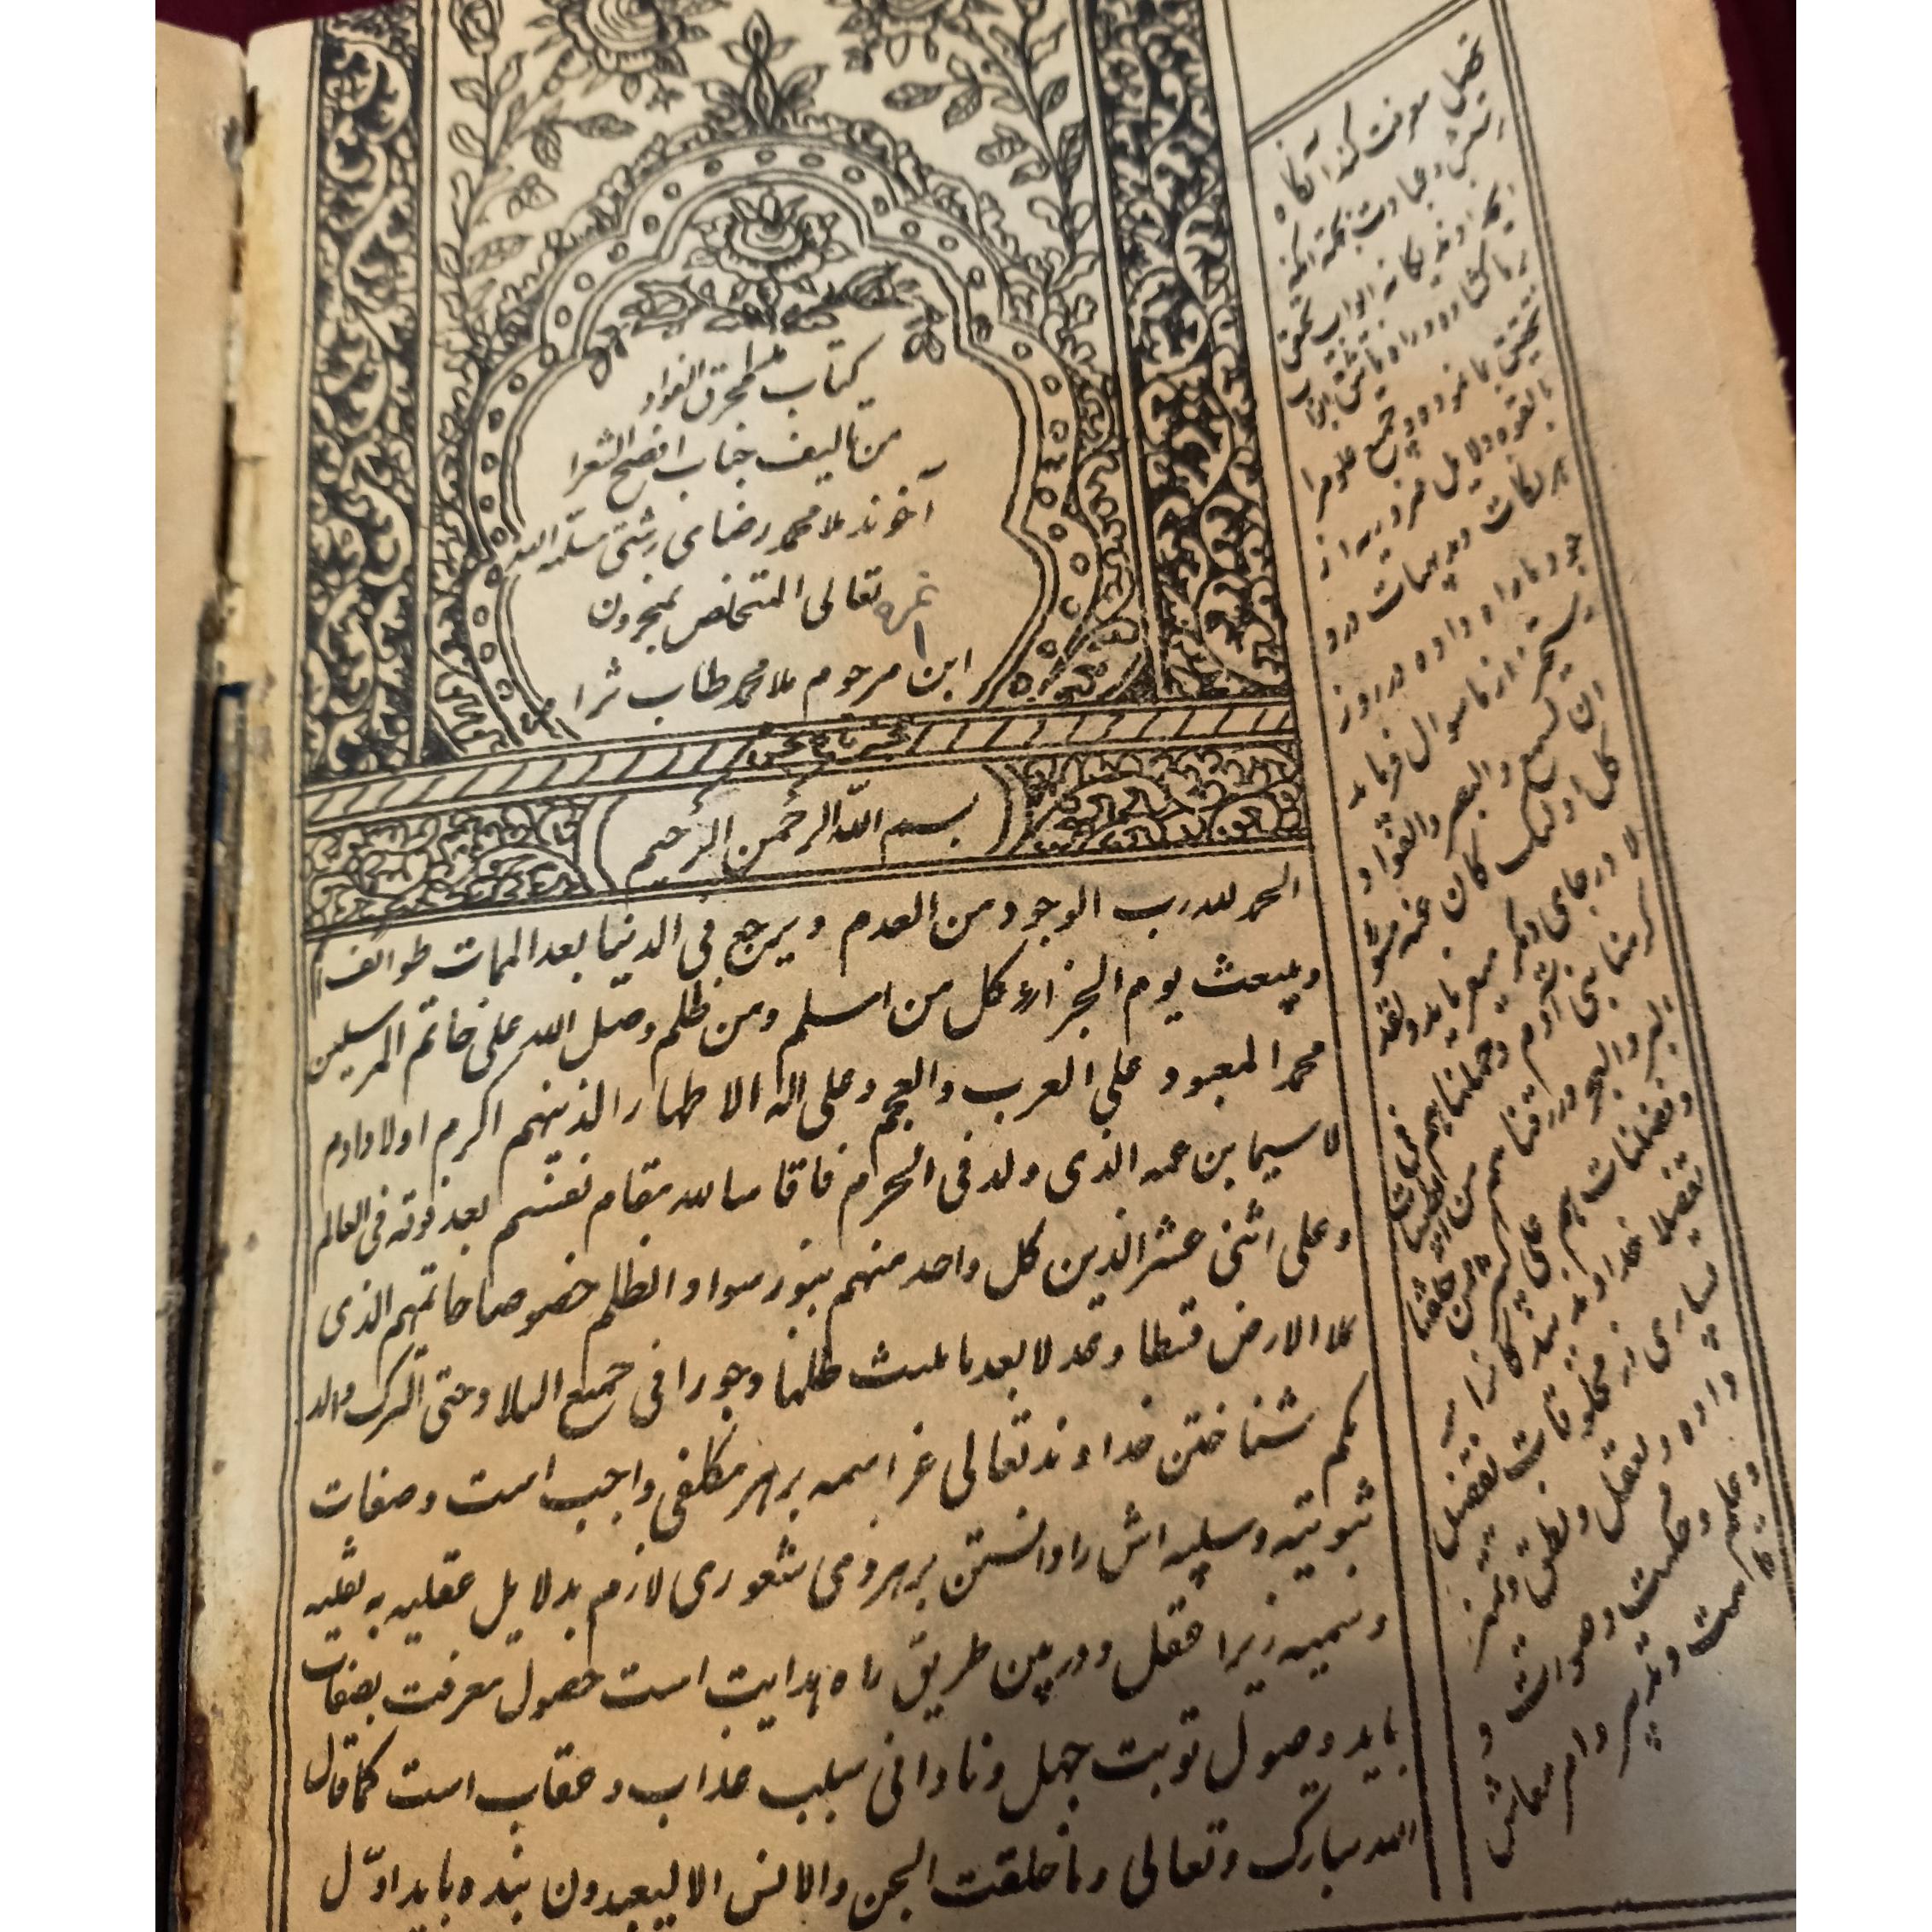 کتاب محرق الفواد
من تالیف جناب افصح الشعرا
آخوند ملا محمد رضای رشتی سلمه الله
تعالی المتخلص بمحزون
ابن مرحوم ملا محمد طاب ثراه
بسم الله الرحمن الرحیم
الحمد لله رب الوجود من العدم و یرجع فی الدنیا بعد الممات طوائف
ویبعث یوم الجزاء کل من اسلم ومن ظلم وصل الله علی خاتم المرسلین
محمد المعبود علی العرب والعجم وعلی اله الاطهار الذینهم اکرم اولاد ادم
لا سیما بن عمه الذی ولد فی الحرم فاقامه الله مقام نفسه بعد فوته فی العالم
وعلی اثنی عشر الذین کل واحد منهم بنور سواد الظلم خصوصا خاتمهم الذی
ملا الارض قسطا وعدلا بعد ما ملئت ظلما وجورا فی جمیع البلاد حتی الترک والد
یلم شناختن خداوند تعالی عز اسمه بر هر مکلفی واجب است و صفات
ثبوتیه وسلبیه اش را دانستن بر هر ذی شعوری لازم بدلایل عقلیه به نقلیه
وسمیه زیرا عقل دوربین طریق راه هدایت است حصول معرفت بصفات
باید وصول توبت جهل ونادانی سبب عذاب و عقاب است کما قال
الله تبارک وتعالی وما خلقت الجن والانس الا لیعبدون بنده باید اوّل
تحصیل معرفت کند آنگاه
پرستش و عبادت
خداوند یگانه ابواب تحقیق
بما نموده و جمیع علوم را
بالقوه و دلایل ضروریه از
خود مارا داده در روز
از ما سوال فرماید
ان السمع والبصر والفواد
کل اولئک کان عنه مسئو
لا در جای دیگر میفرماید ولقد
کرمنا بنی آدم وحملناهم فی
البر والبحر ورزقناهم من الطیبات
وفضلناهم علی کثیر ممن خلقنا
تفضیلا خداوند بندگانرا بر
بسیاری از مخلوقات تفضیل
داده و بعقل و نطق و تمیز
و علم و حکمت و صوات و